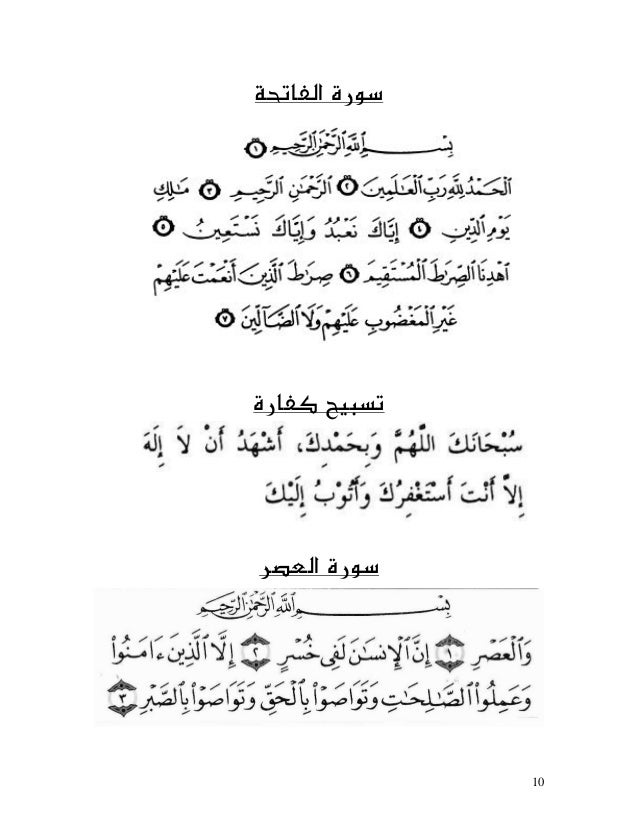 سورة الفاتحة
بِسْمِ ٱللَّهِ ٱلرَّحْمَٰنِ ٱلرَّحِيمِ ١
ٱلْحَمْدُ لِلَّهِ رَبِّ ٱلْعَٰلَمِينَ ٢ ٱلرَّحْمَٰنِ ٱلرَّحِيمِ ٣ مَٰلِكِ
يَوْمِ ٱلدِّينِ ٤ إِيَّاكَ نَعْبُدُ وَإِيَّاكَ نَسْتَعِينُ ٥
ٱهْدِنَا ٱلصِّرَٰطَ ٱلْمُسْتَقِيمَ ٦ صِرَٰطَ ٱلَّذِينَ أَنْعَمْتَ عَلَيْهِمْ
غَيْرِ ٱلْمَغْضُوبِ عَلَيْهِمْ وَلَا ٱلضَّآلِّينَ ٧
تسبيح كفارة
سُبْحَانَكَ اللَّهُمَّ وَبِحَمْدِكَ، أَشْهَدُ أَنْ لَا إِلَهَ
إِلَّا أَنْتَ أَسْتَغْفِرُكَ وَأَتُوْبُ إِلَيْكَ
سورة العصر
بِسْمِ ٱللَّهِ ٱلرَّحْمَٰنِ ٱلرَّحِيمِ
وَٱلْعَصْرِ ١ إِنَّ ٱلْإِنسَٰنَ لَفِى خُسْرٍ ٢ إِلَّا ٱلَّذِينَ ءَامَنُوا۟
وَعَمِلُوا۟ ٱلصَّٰلِحَٰتِ وَتَوَاصَوْا۟ بِٱلْحَقِّ وَتَوَاصَوْا۟ بِٱلصَّبْرِ ٣
10